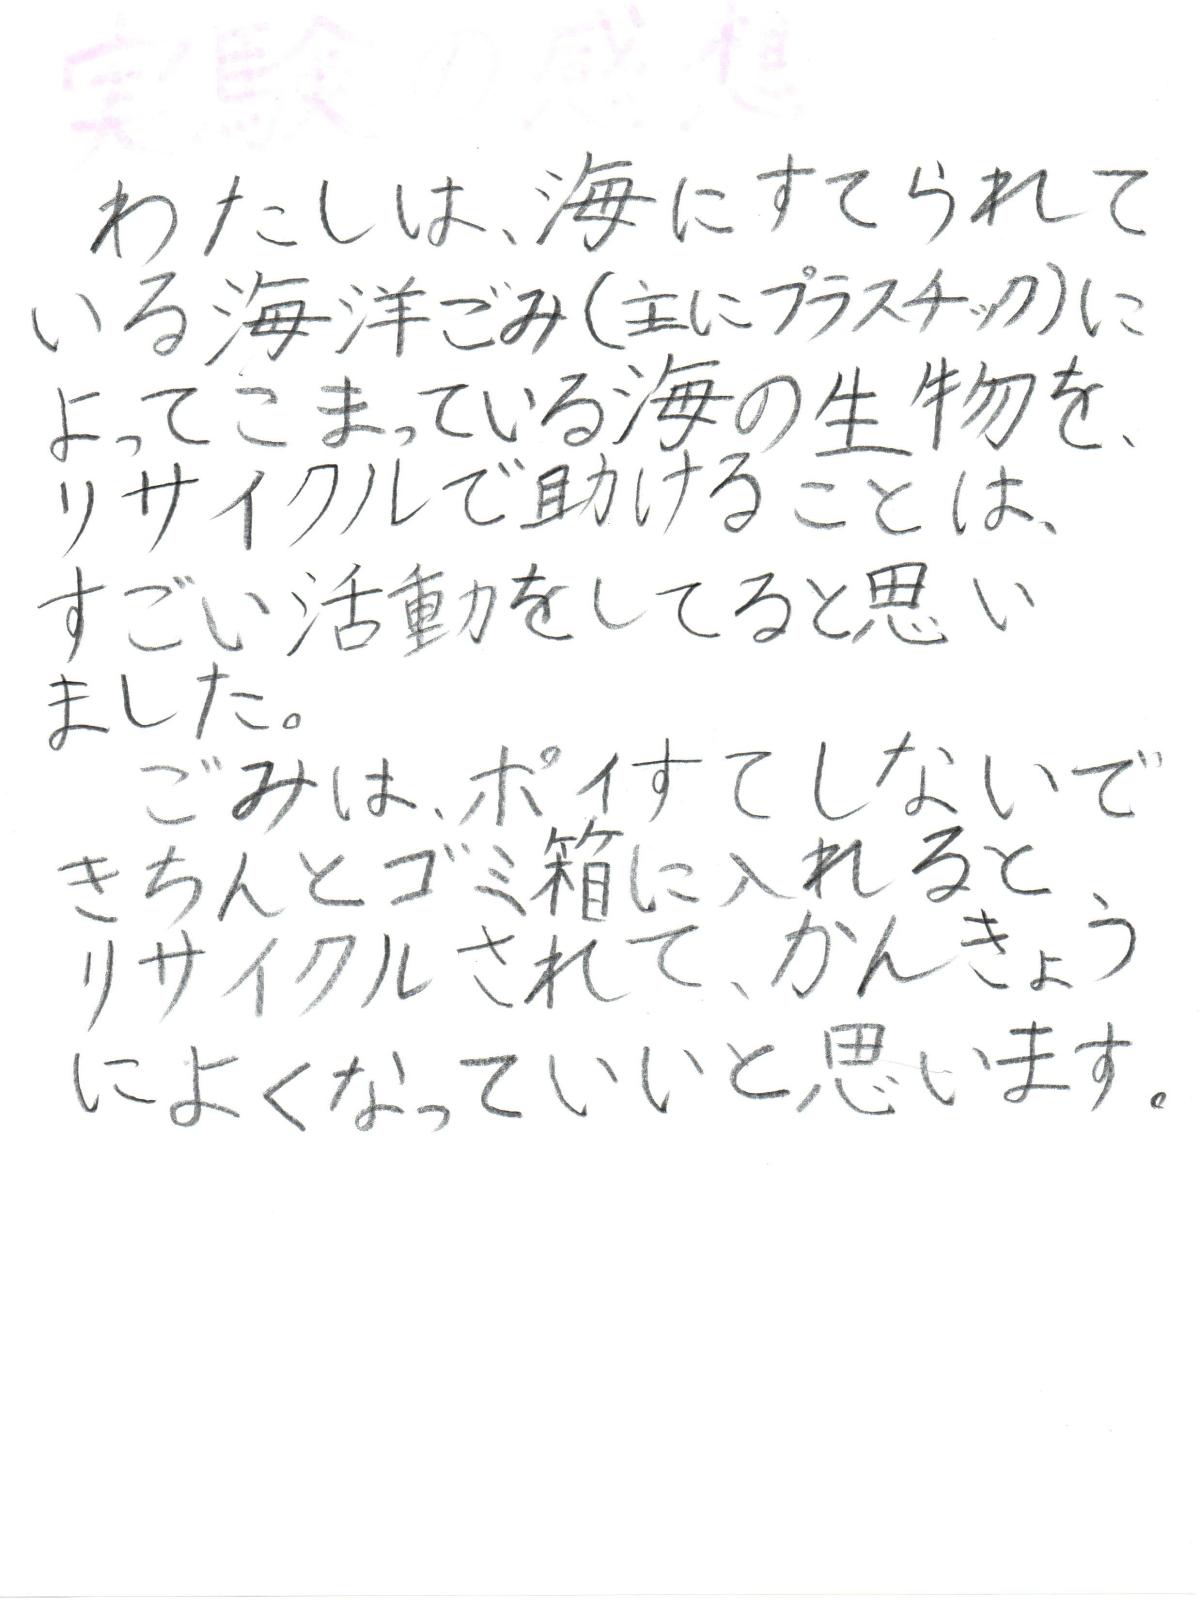 実験の感想
わたしは、海にすてられて
いる海洋ごみ(主にプラスチック)に
よってこまっている海の生物を、
リサイクルで助けることは、
すごい活動をしてると思い
ました。
ごみは、ポイすてしないで
きちんとゴミ箱に入れると
リサイクルされて、かんきょう
によくなっていいと思います。